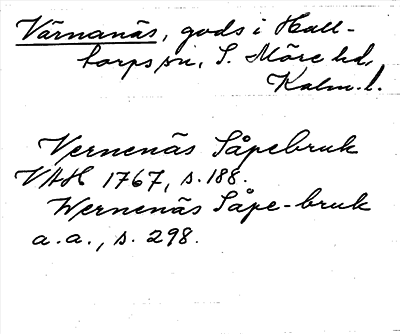 Värnanäs, gods i Hall-
torps sn, S. Möre hd,
Kalm. l.
Vernenäs Såpebruk
VAH 1767, s. 188.
Wernenäs Såpe-bruk
a. a., s. 298.